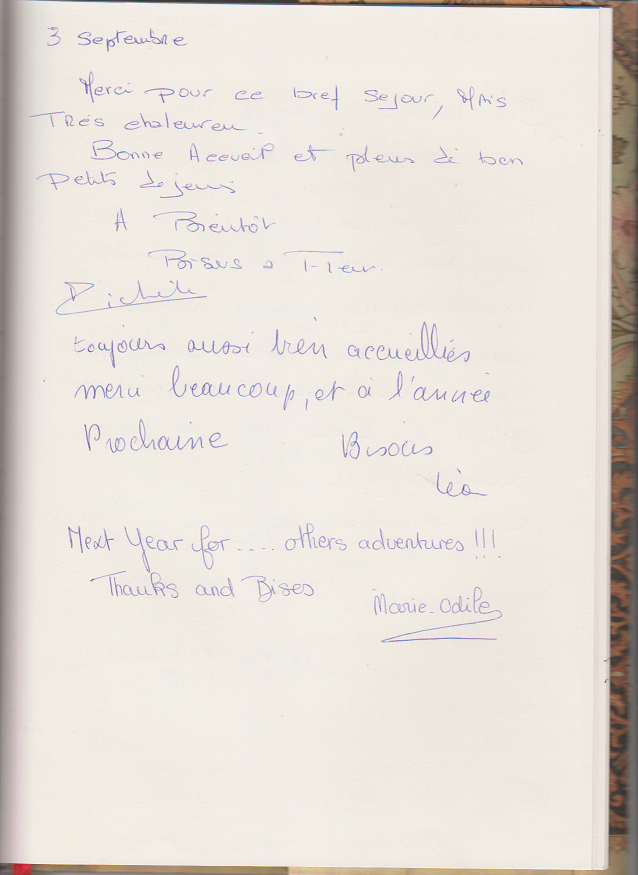 3 Septembre
Merci pour ce bref sejour, Mais
TRÉS chaleureu.
Bonne Accueil et pleins de bon
Petits dejeuns
A Bientôt
Bisous a
Michele
toujours aussi bien accueilliés
merci beaucoup, et à l'année
Prochaine Bisous
Léa
Next Year for.... others adventures !!!
Thanks and Bises
Marie-Odile